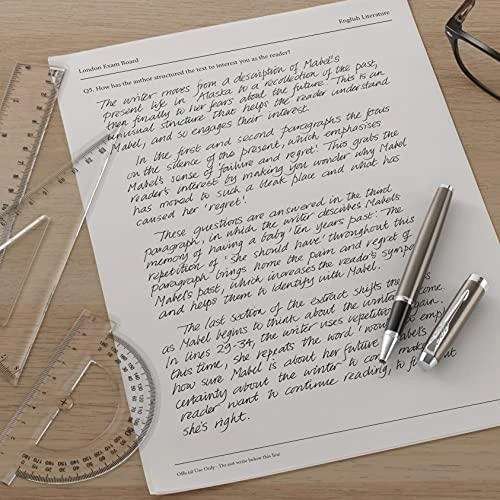 London Exam Board
English Literature
Q5. How has the author structured the text to interest you as the reader?
The writer moves from a description of Mabel's
present life in Alaska to a recollection of the past,
then finally to her fears about the future. This is an
unusual structure that helps the reader understand
Mabel, and so engages their interest.
In the first and second paragraphs the focus
on the silence of the present, which emphasises
Mabel's sense of 'failure and regret'. This grabs the
reader's interest by making you wonder why Mabel
has moved to such a bleak place and what has
caused her 'regret'.
These questions are answered in the third
paragraph, in which the writer describes Mabel's
memory of having a baby 'ten years past'. The
repetition of 'She should have' throughout this
paragraph brings home the pain and regret of
Mabel's past, which increases the reader's
and helps them to identify with Mabel.
The last section of the extract shifts the
as Mabel begins to think about the winter
In lines 29-34, the writer uses
this time, she repeats the word
how sure Mabel is about her future
certainty about the winter to
reader want to continue reading, to
she's right.
Official Use Only - Do not write below this line